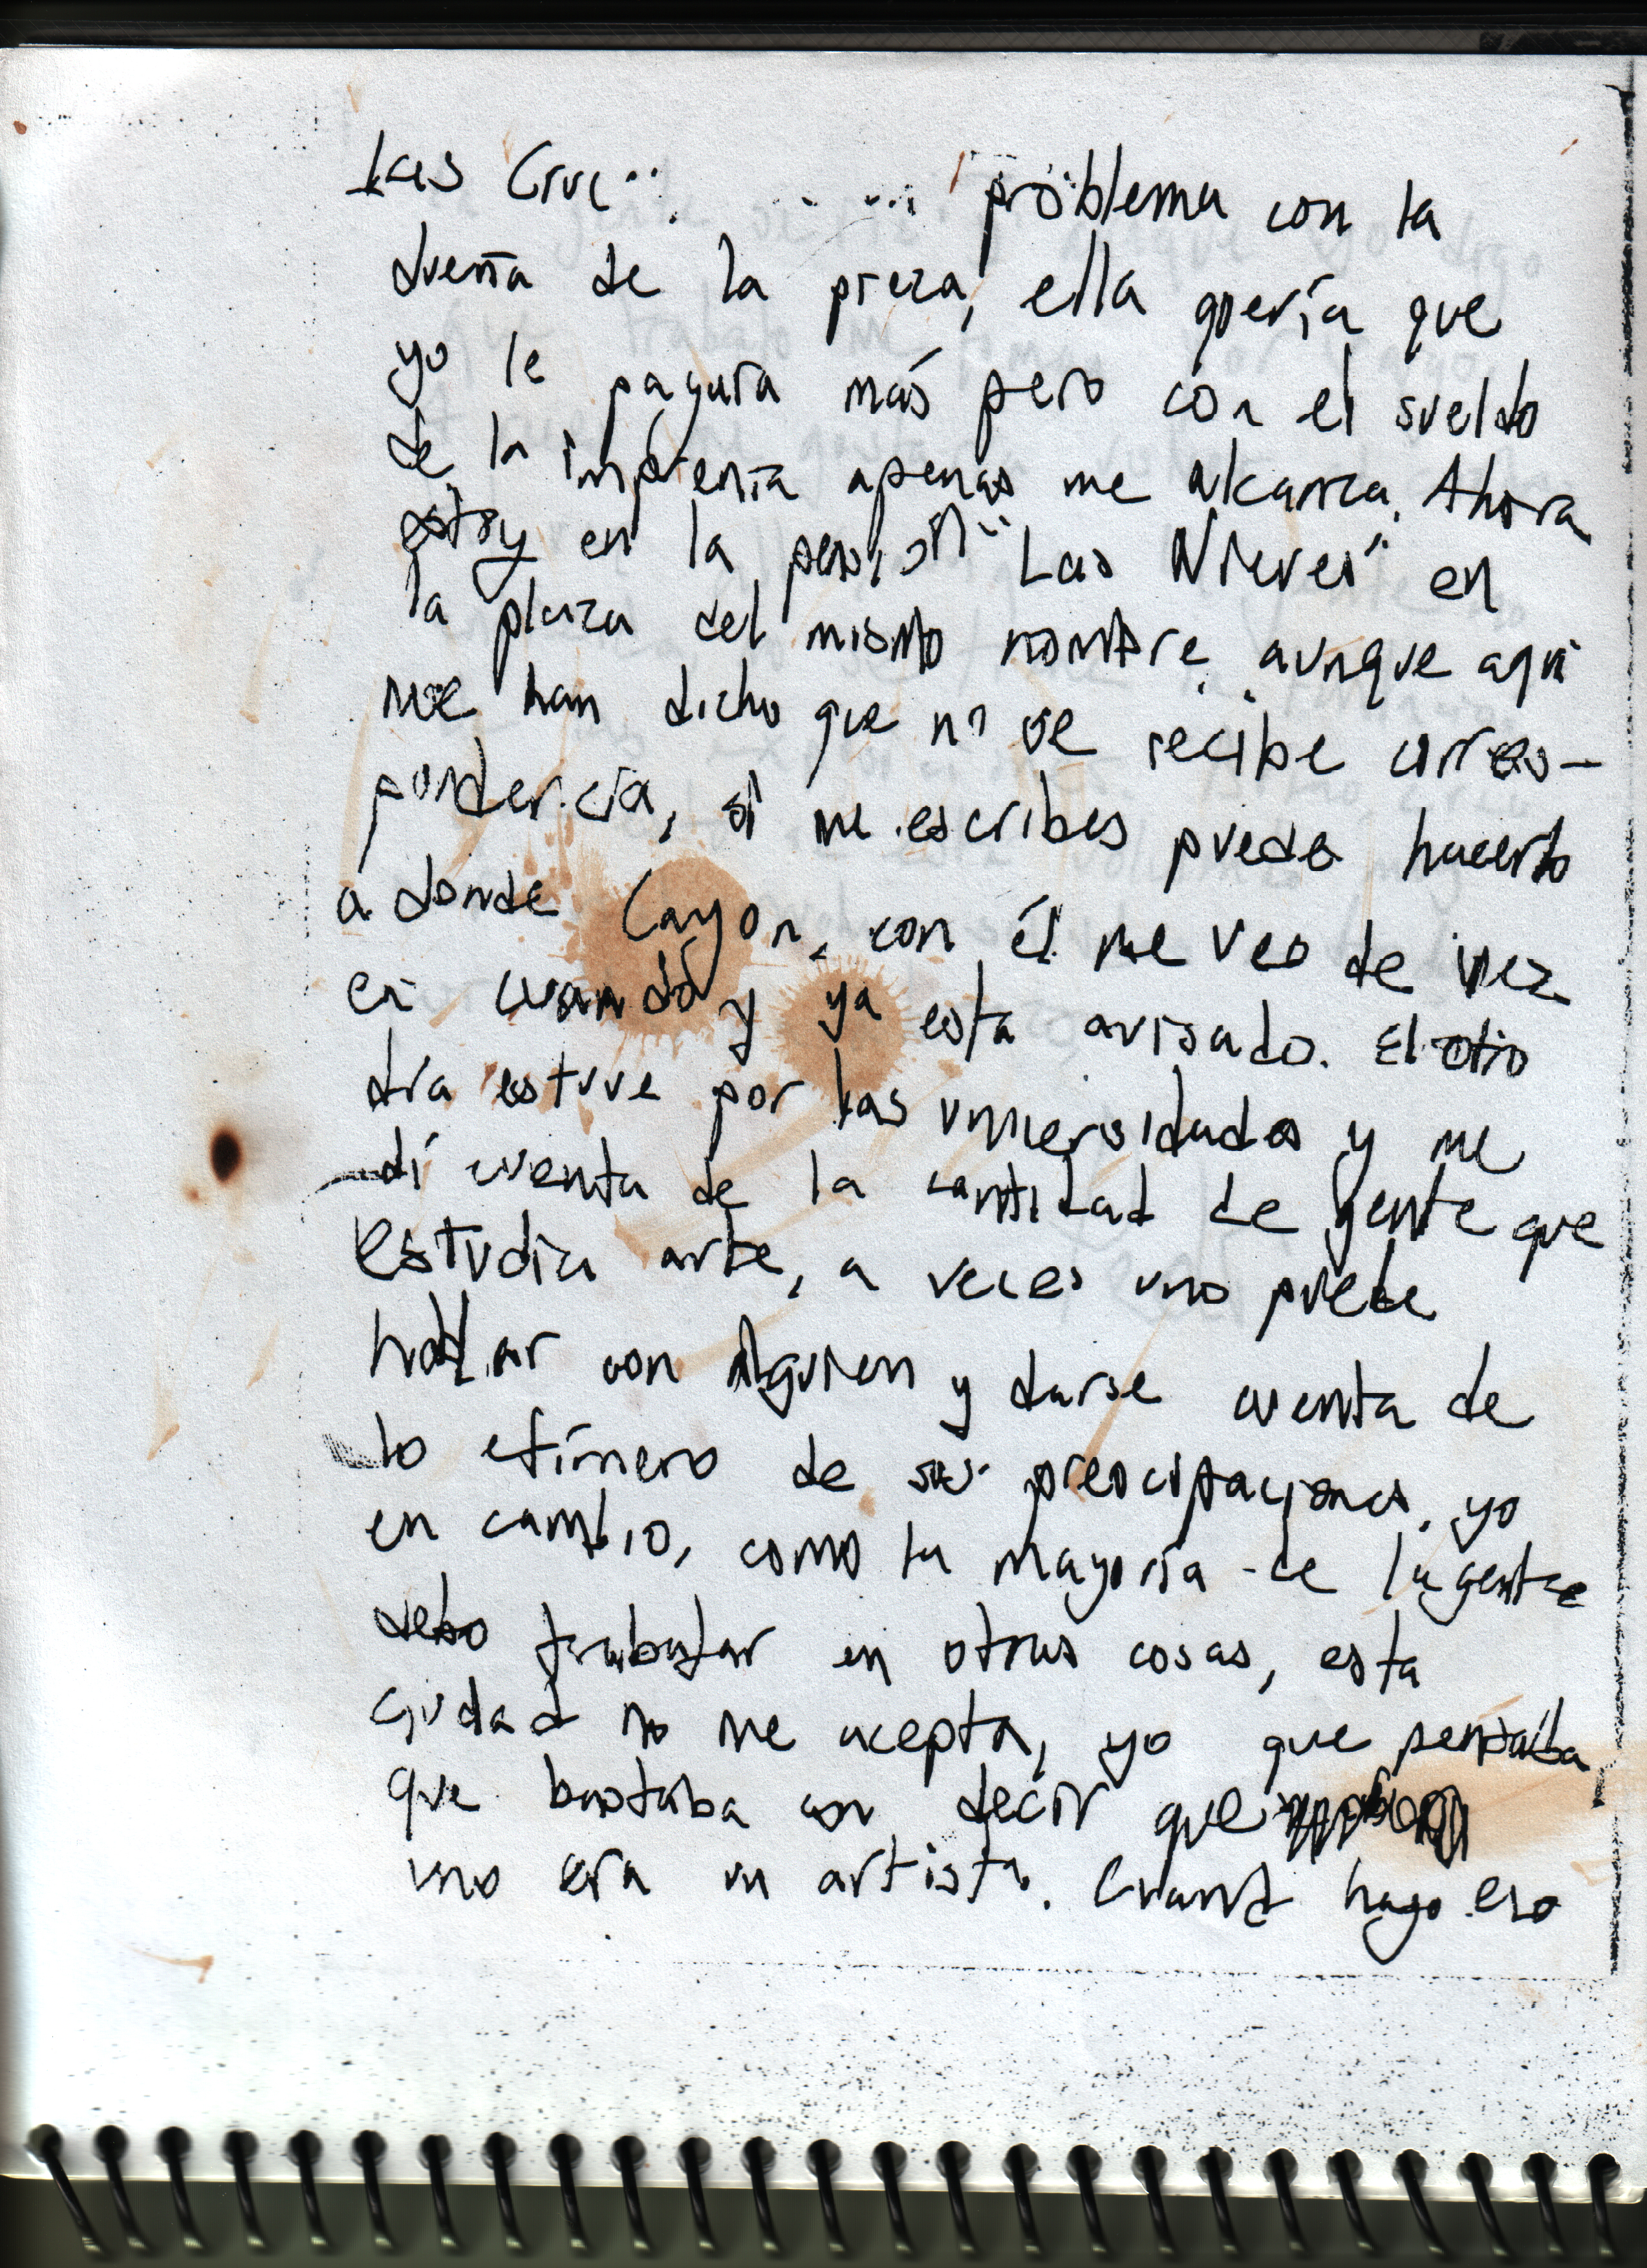 Las Cruc problema con la
dueña de la pieza, ella quería que
yo le pagara más pero con el sueldo
de la imprenta apenas me alcanza. Ahora
estoy en la pensión "Las Nieves" en
la plaza del mismo nombre, aunque aquí
me han dicho que no se recibe corres-
pondencia, si me escribes puedes hacerlo
a donde Cayon, con él me veo de vez
en cuando y ya esta avisado. El otro
día estuve por las universidades y me
dí cuenta de la cantidad de gente que
estudia arte, a veces uno puede
hablar con alguien y darse cuenta de
lo efímero de sus preocupaciones. yo
en cambio, como la mayoría de la gente
debo trabajar en otras cosas, esta
ciudad no me acepta, yo que pensaba
que bastaba con decir que
uno era un artista. Cuando hago eso